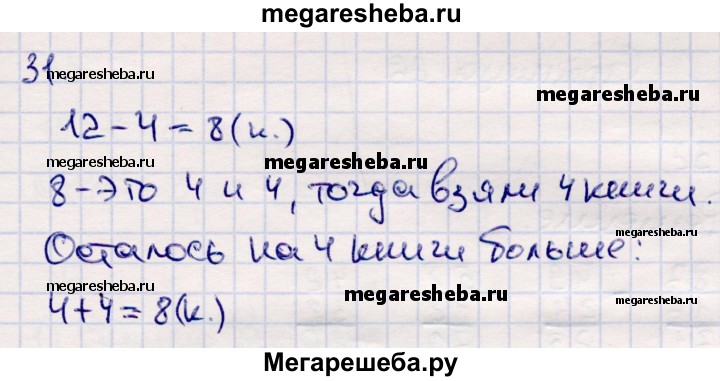 megaresheba.ru
31
megaresheba.ru
megaresheba.ru
12 - 4 = 8 (к.)
megaresheba.ru
megaresheba.ru
8 - это 4 и 4, тогда взяли 4 книги.
megaresheba.ru
Осталось на 4 книги больше:
megaresheba.ru
megaresheba.ru
megaresheba.ru
4 + 4 = 8 (к.)
Мегарешеба.ру